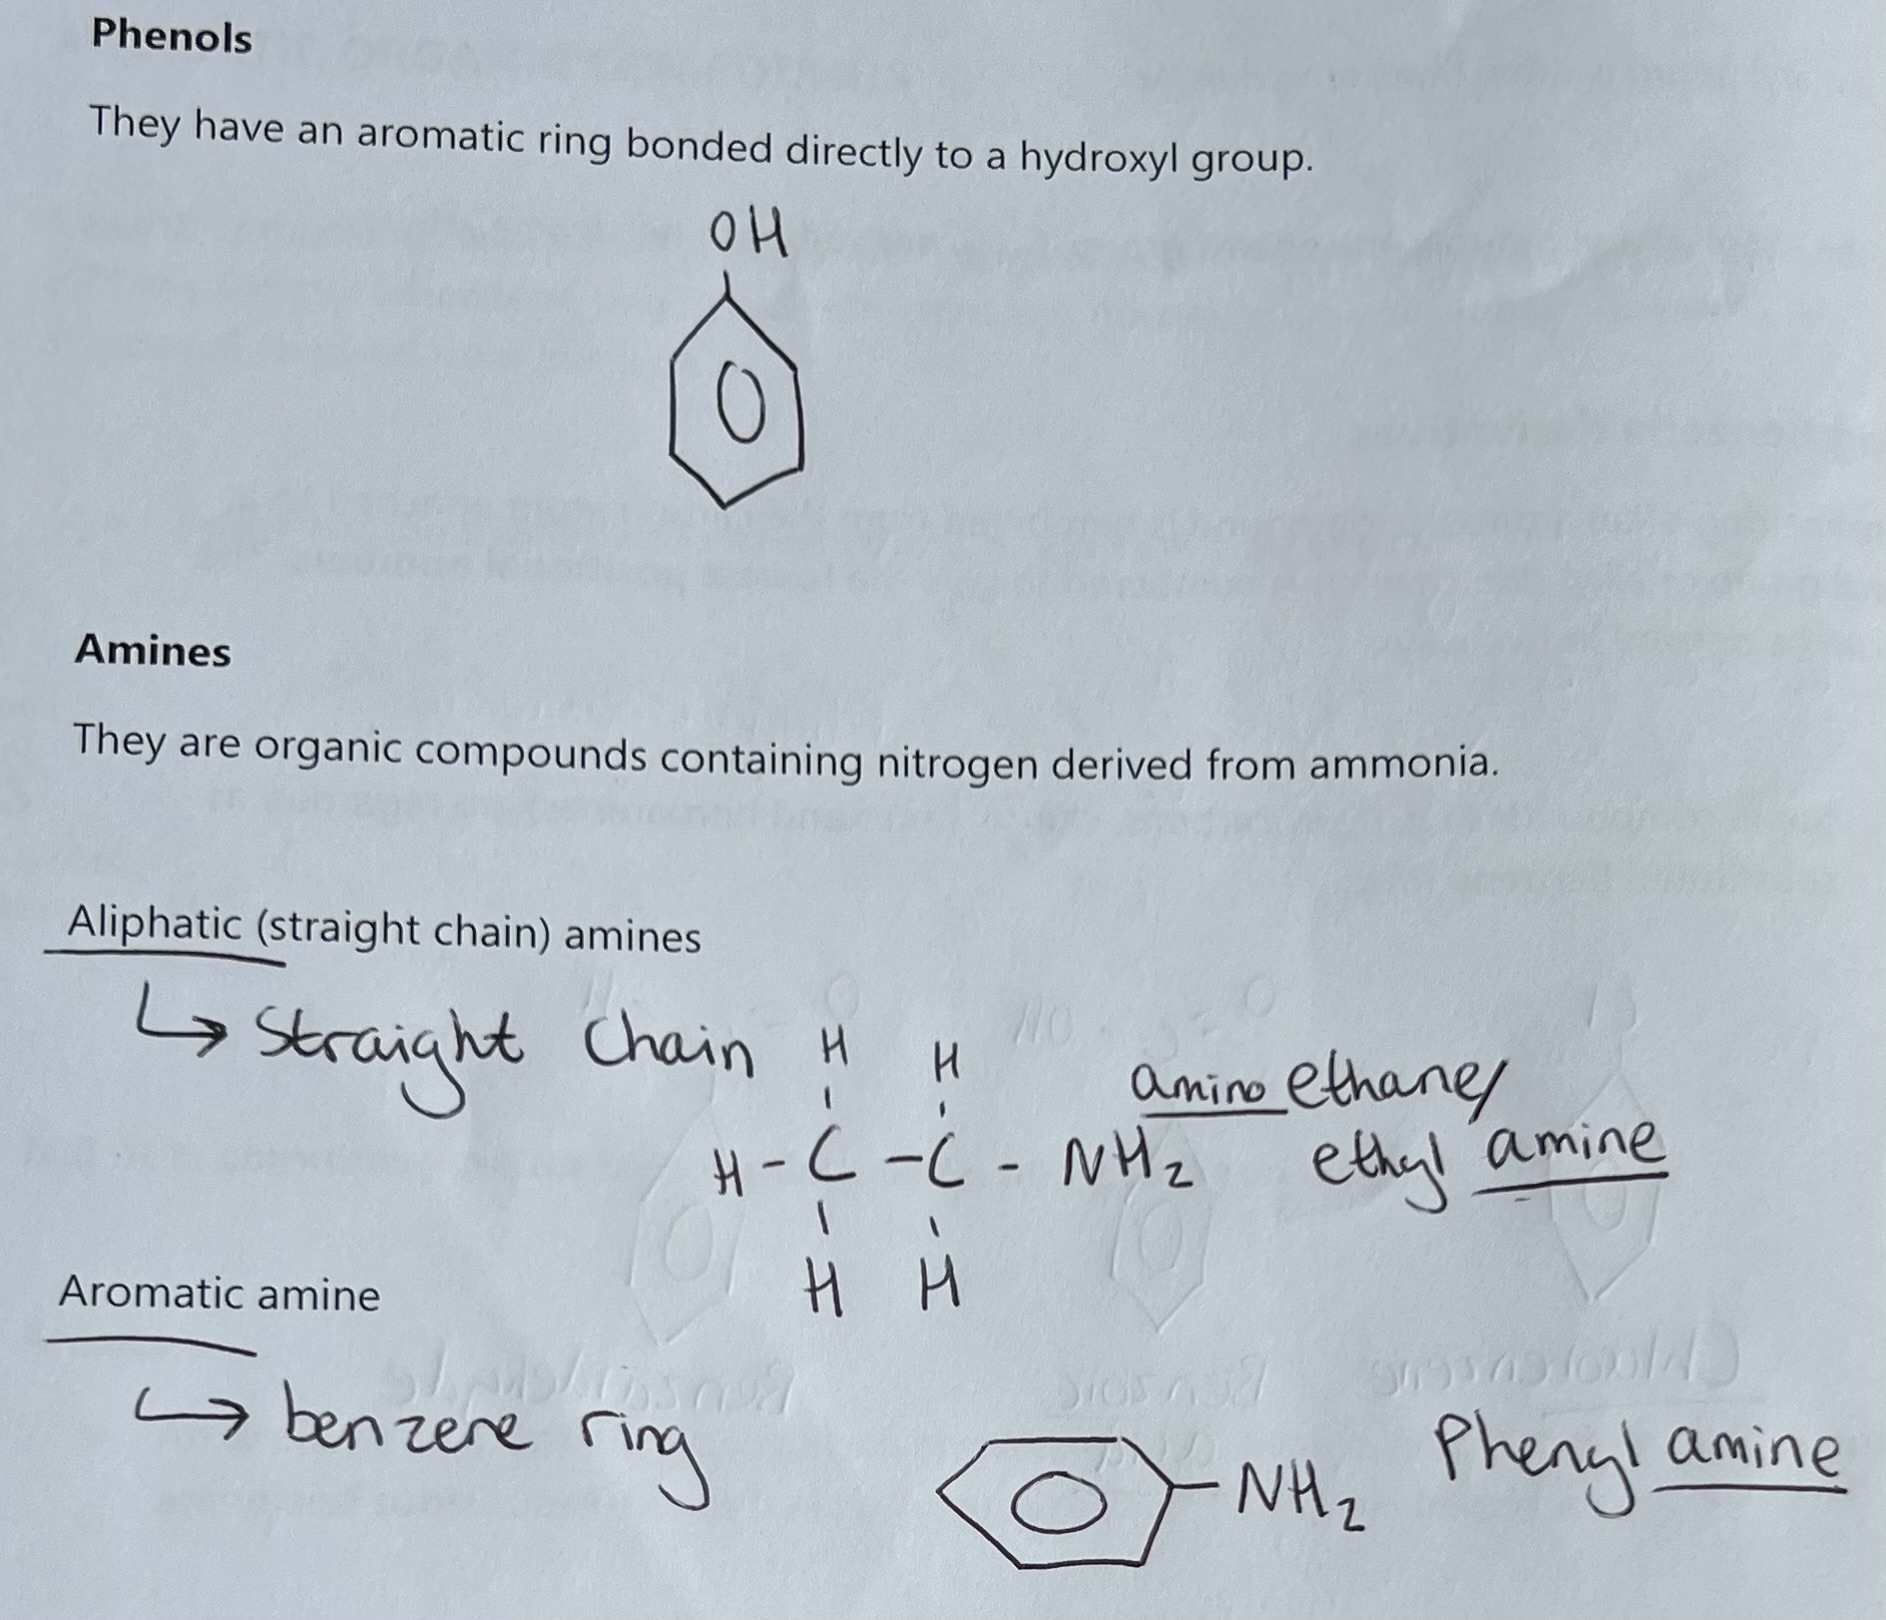 Phenols
They have an aromatic ring bonded directly to a hydroxyl group.
OH
Amines
They are organic compounds containing nitrogen derived from ammonia.
Aliphatic (straight chain) amines
↳ Straight Chain
H H
H - C - C - NH2
H H
amino ethane/
ethyl amine
Aromatic amine
↳ benzene ring
NH2
Phenyl amine